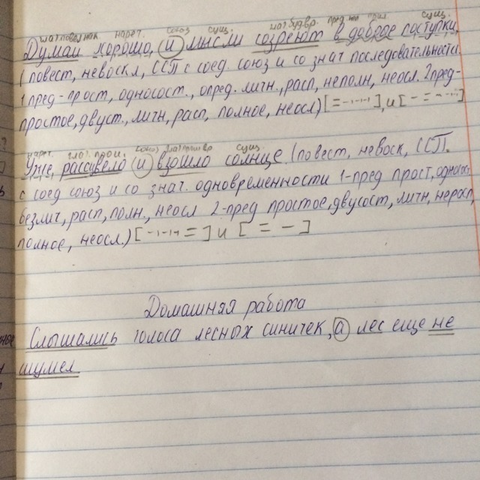 нареч. союз сущ. сущ.
Думай хорошо, и мысли созреют в добрые поступки
(повест, невоскл, ССП с соед союз и со знач последовательности
1 пред-прост, односост., опред. личн., расп, неполн, неосл. 2 пред-
простое, двуст., личн, расп, полное, неосл.) [ = -.-.-. ], и [ - = -.-.- ]
нареч. сущ.
Уже рассвело и взошло солнце (повест, невоск, ССП
с соед союз и со знач. одновременности 1-пред прост, одност
безлич, расп, полн., неосл 2-пред простое, двусост, личн, нерасп,
полное, неосл.) [ -.-.- = ] и [ = - ]
Домашняя работа
Слышались голоса лесных синичек, а лес еще не
шумел